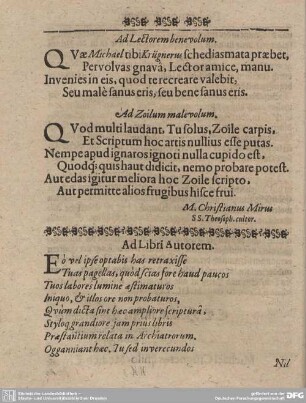 Ad Lectorem benevolum.
QVæ Michael tibi Krügnerus schediasmata præbet,
Pervolvas gnavâ, Lector amice, manu.
Invenies in eis, quod te recreare valebit,
Seu malè sanus eris, seu bene sanus eris.
Ad Zoilum malevolum.
QVod multi laudant, Tu solus, Zoile carpis,
Et Scriptum hoc artis nullius esse putas.
Nempe apud ignaros ignoti nulla cupido est,
Quodq; quis haut didicit, nemo probare potest.
Aut edas igitur meliora hoc Zoile scripto,
Aut permitte alios frugibus hisce frui.
M. Christianus Mirus
SS. Theosoph. cultor.
Ad Libri Autorem.
EO vel ipse optabis has retraxisse
Tuas pagellas, quòd scias fore haud paucos
Tuos labores lumine æstimaturos
Iniquo, & illos ore non probaturos,
Qvum dicta sint hæc ampliore scripturâ,
Styloq; grandiore jam prius libris
Præstantium relata in Archiatrorum,
Ogganniant hæc, Tu sed inverecundos
Nil